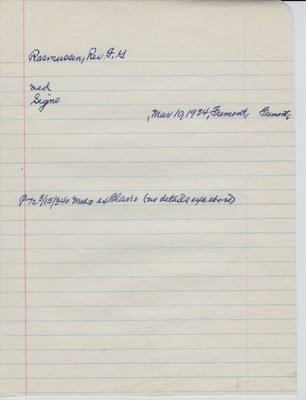 Rasmussen, Rev. F. G
med
Signe
, Mar 10, 1934, Fremont, Fremont,
P 72 9/15/340 ex Blair (no details exc above)